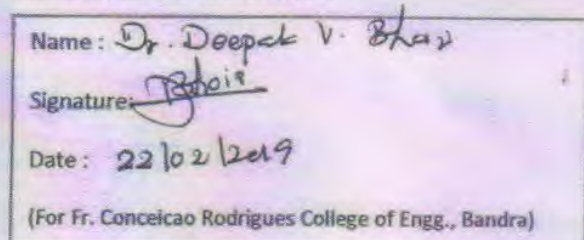 Name : Dr. Deepak V. Bhoir
Signature: Bhoir
Date : 22/02/2019
(For Fr. Conceicao Rodrigues College of Engg., Bandra)